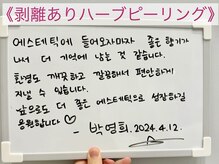 《剥離ありハーブピーリング》
에스테틱에 들어오자마자 좋은 향기가
나서 더 기억에 남는 것 같습니다.
환경도 깨끗하고 깔끔해서 편안하게
지낼 수 있습니다.
앞으로도 더 좋은 에스테틱으로 성장하길
응원합니다♡
- 박영희. 2024.4.12.